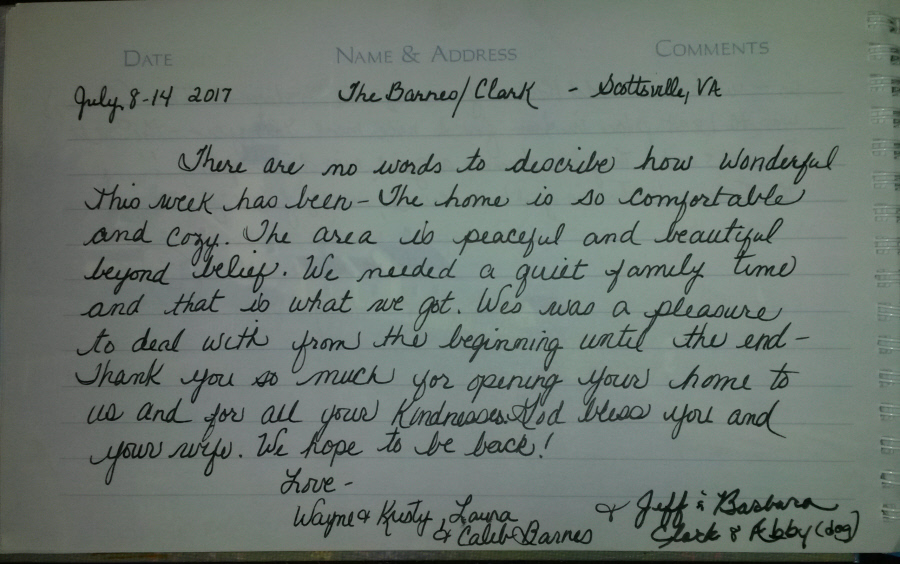 DATE NAME & ADDRESS COMMENTS
July 8-14 2017 The Barnes/Clark - Scottsville, VA
There are no words to describe how wonderful
this week has been - The home is so comfortable
and cozy. The area is peaceful and beautiful
beyond belief. We needed a quiet family time
and that is what we got. Wes was a pleasure
to deal with from the beginning until the end -
Thank you so much for opening your home to
us and for all your kindnesses. God bless you and
your wife. We hope to be back!
Love -
Wayne & Kristy, Laura & Jeff & Barbara
& Caleb Barnes Clark & Abby (dog)